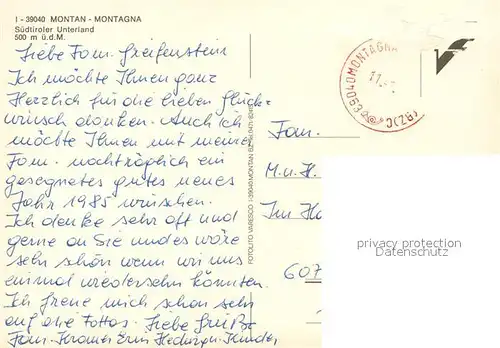 I - 39040 MONTAN - MONTAGNA
Südtiroler Unterland
500 m ü.d.M.
Liebe Fam. Greifenstein
Ich möchte Ihnen ganz
Herzlich für die lieben Glück-
wünsch danken. Auch ich
möchte Ihnen mit meiner
Fam. nachträglich ein
gesegnetes gutes neues
Jahr 1985 wünschen.
Ich denke sehr oft und
gerne an Sie und es wäre
sehr schön wenn wir uns
einmal wiedersehn könnten.
Ich freue mich schon sehr
auf die Fottos. Liebe Grüße
Fam. Kramer Erni Hedwig Kinder
FOTOLITO VARESCO I-39040 MONTAN
39040 MONTAGNA (BZ)
11.
Fam.
M. u. H.
Im Ha
607
privacy protection
Datenschutz